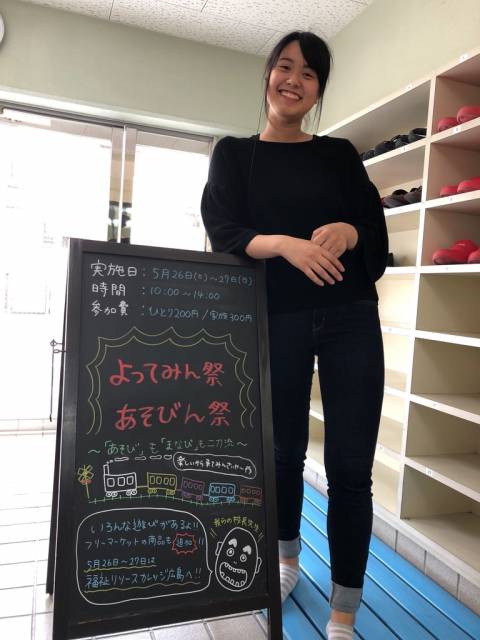 実施日：5月26日(土)～27日(日)
時間：10:00～14:00
参加費：ひとり200円/家族300円
よってみん祭
あそびん祭
～「あそび」も「まなび」も二刀流～
楽しいから来てみてぃーの
いろんな遊びがあるよ!!
フリーマーケットの商品も追加!!
5月26日～27日は
福祉リソースカレッジ広島へ!!
我らの校長先生